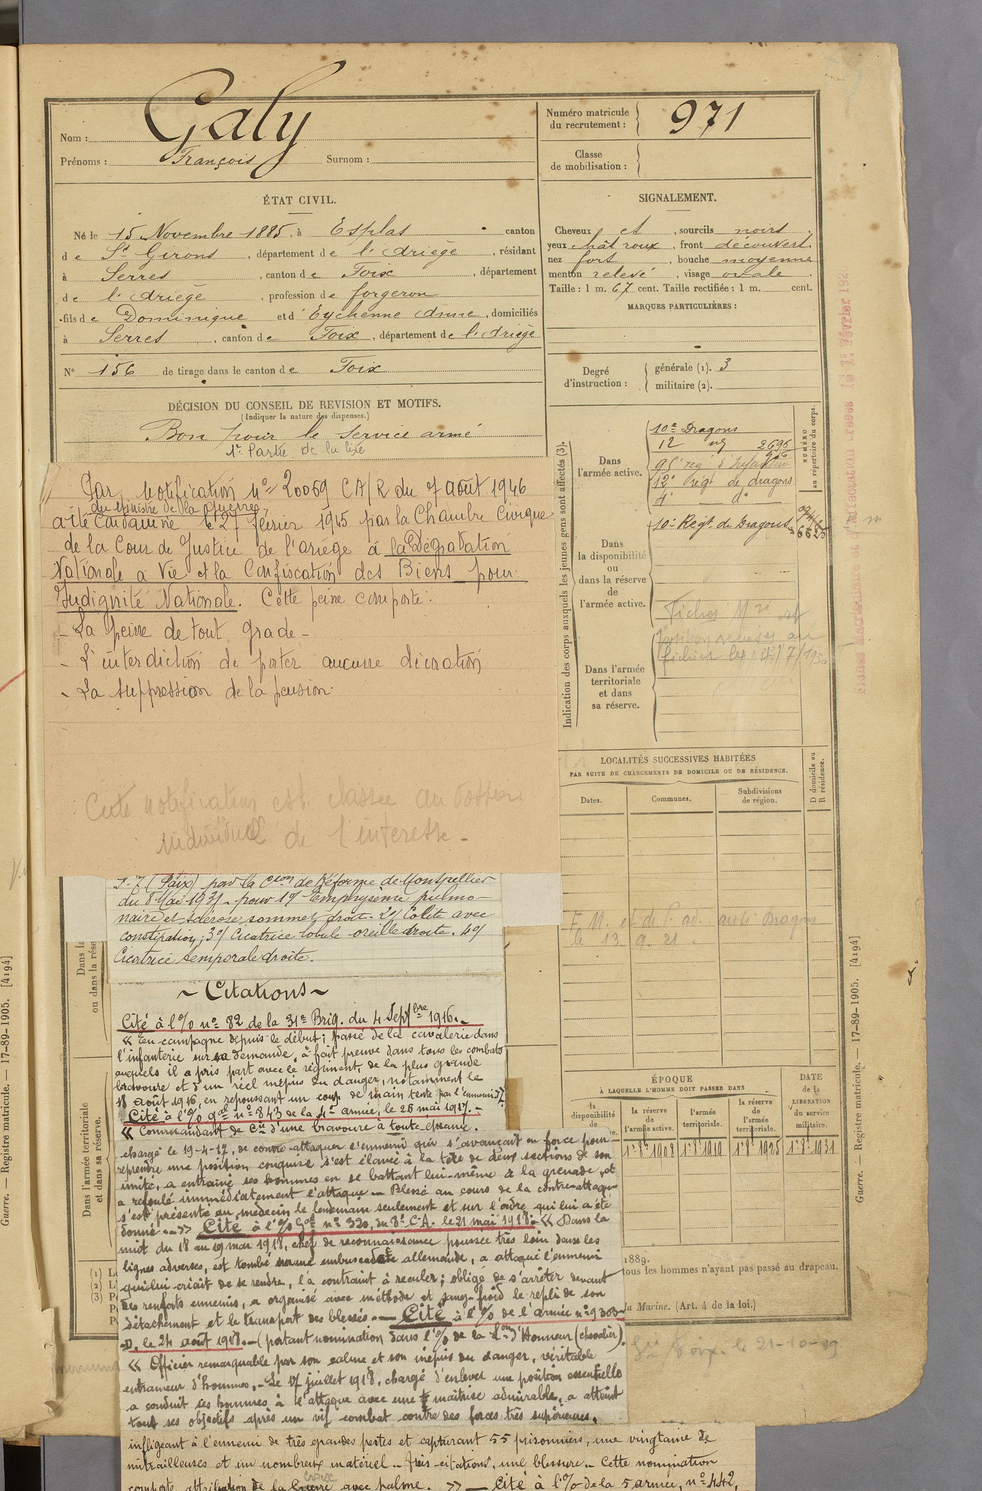 Nom : Galy
Prénoms : François Surnom :
Numéro matricule du recrutement : 971
Classe de mobilisation :
ÉTAT CIVIL.
Né le 15 Novembre 1885, à Esplas canton
de St Girons, département de l'Ariège, résidant
à Serres, canton de Foix, département
de l'Ariège, profession de forgeron
fils de Dominique et d'Eychenne Anne, domiciliés
à Serres, canton de Foix, département de l'Ariège
N° 156 de tirage dans le canton de Foix
SIGNALEMENT.
Cheveux et, sourcils noirs
yeux chât roux, front découvert
nez fort, bouche moyenne
menton relevé, visage ovale
Taille : 1 m. 67 cent. Taille rectifiée : 1 m. cent.
MARQUES PARTICULIÈRES :
Degré d'instruction : générale (1). 3
militaire (2).
DÉCISION DU CONSEIL DE REVISION ET MOTIFS.
(Indiquer la nature des dispenses.)
Bon pour le service armé
1re Partie de la liste
Par notification n° 20059 CA/R du 7 août 1946
du Ministre de la Guerre,
a été condamné le 27 février 1945 par la Chambre Civique
de la Cour de Justice de l'ariège à la Dégradation
Nationale à Vie et la Confiscation des Biens pour
Indignité Nationale. Cette peine comporte :
- La peine de tout grade -
- L'interdiction de porter aucune décoration
- La suppression de la pension.
Cette notification est classée au dossier
individuel de l'interessé -
Indication des corps auxquels les jeunes gens sont affectés (3).
NUMÉRO au répertoire du corps.
Dans l'armée active.
10e Dragons
12 2696
95 reg d'Infanterie
12e reg de dragons
4e d°
Dans la disponibilité ou dans la réserve de l'armée active.
10e Régt. de Dragons
Dans l'armée territoriale et dans sa réserve.
Fiches
fichier les 7/1950
LOCALITÉS SUCCESSIVES HABITÉES
PAR SUITE DE CHANGEMENTS DE DOMICILE OU DE RÉSIDENCE.
Dates. Communes. Subdivisions de région. D domicile ou R résidence.
F. M. et di P. au Dragons
le 13. 9. 21.
(Paix) par la Cion de Réforme de Montpellier
du 8 Mai 1931 - pour 1°/ Emphysème pulmo-
naire et sclérose sommet droit. 2°/ Colite avec
constipation ; 3°/ Cicatrice lobule oreille droite. 4°/
Cicatrice temporale droite.
~ Citations ~
Cité à l'% n° 82 de la 31e Brig. du 4 Septbre 1916. -
« en campagne depuis le début ; passé de la cavalerie dans
l'infanterie sur sa demande, a fait preuve dans tous les combats
auxquels il a pris part avec le régiment, de la plus grande
bravoure et d'un réel mépris du danger, notamment le
18 août 1916, en repoussant un coup de main tenté par l'ennemi ».
Cité à l'% gal n° 843 de la 4e armée, le 26 mai 1917. -
« Commandant de Cie d'une bravoure à toute épreuve.
chargé le 19-4-17, de contre-attaquer l'ennemi qui s'avançait en force pour
reprendre une position conquise s'est élancé à la tête de deux sections de son
unité, a entraîné ses hommes en se battant lui-même à la grenade, et
a refoulé immédiatement l'attaque - Blessé au cours de la contre-attaque
s'est présenté au médecin le lendemain seulement et sur l'ordre qui lui a été
donné - » Cité à l'% Gal n° 320, du 8e C.A. le 21 mai 1918. - « Dans la
nuit du 18 au 19 mai 1918, chef de reconnaissance poussée très loin dans les
lignes adverses, est tombé sur une embuscade allemande, a attaqué l'ennemi
qui lui criait de se rendre, l'a contraint à reculer ; obligé de s'arrêter devant
des renforts ennemis, a organisé avec méthode et sang-froid le repli de son
détachement et le transport des blessés. - Cité à l'% de l'armée n° 9303
D, le 24 août 1918. - (portant nomination dans l'% de la Lon d'Honneur (chevalier).
« Officier remarquable par son calme et son mépris du danger, véritable
entraineur d'hommes. - Le 17 juillet 1918, chargé d'enlever une position essentielle
a conduit ses hommes à l'attaque avec une maîtrise admirable, a atteint
tous ses objectifs après un vif combat contre des forces très supérieures,
infligeant à l'ennemi de très grandes pertes et capturant 55 prisonniers, une vingtaine de
mitrailleuses et un nombreux matériel - trois citations, une blessure. - Cette nomination
comporte attribution de la Croix Guerre avec palme. » - Cité à l'% de la 5 armée, n° 442,
ÉPOQUE
À LAQUELLE L'HOMME DOIT PASSER DANS
la disponibilité de
la réserve de l'armée active.
l'armée territoriale.
la réserve de l'armée territoriale.
DATE de la LIBÉRATION du service militaire.
1889.
tous les hommes n'ayant pas passé au drapeau.
la Marine. (Art. 4 de la loi.)
Foix. le 21-10-
Dans l'armée territoriale et dans sa réserve.
ou dans la rése
Guerre. — Registre matricule. — 17-89-1905. [4194]
Guerre. — Registre matricule. — 17-89-1905. [4194]